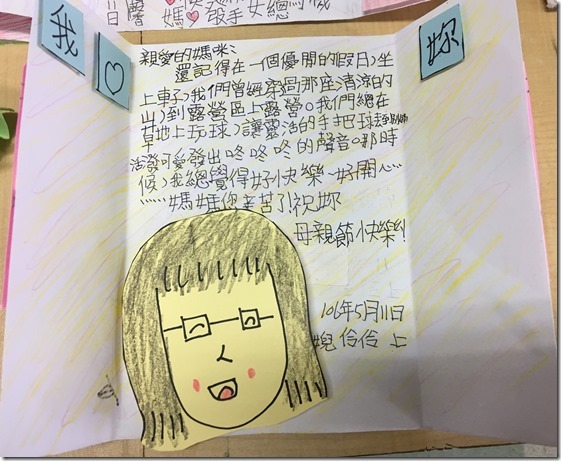 媽♡
我
♡
妳
親愛的媽咪：
還記得在一個優閒的假日，坐
上車子，我們曾經穿過那座清涼的
山，到露營區上露營。我們總在
草地上玩球，讓靈活的手把球去到別的
活發可愛發出咚咚咚的聲音。那時
候，我總覺得好快樂、好開心……
……媽媽您辛苦了！祝妳
母親節快樂！
106年5月11日
伶伶 上